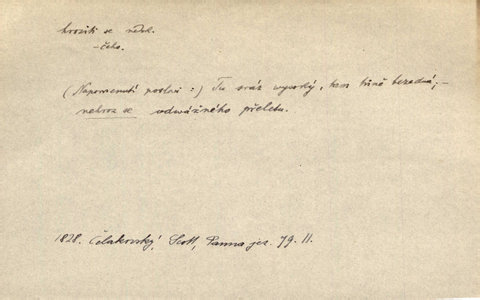 hroziti se nedok.
– čeho.
(Napomenutí poslní :) Tu sráz wysoký, tam tůně bezedná; –
nehroz se odwážného přeletu.
1828. Čelakovský, Scott, Panna jez. 79. II.